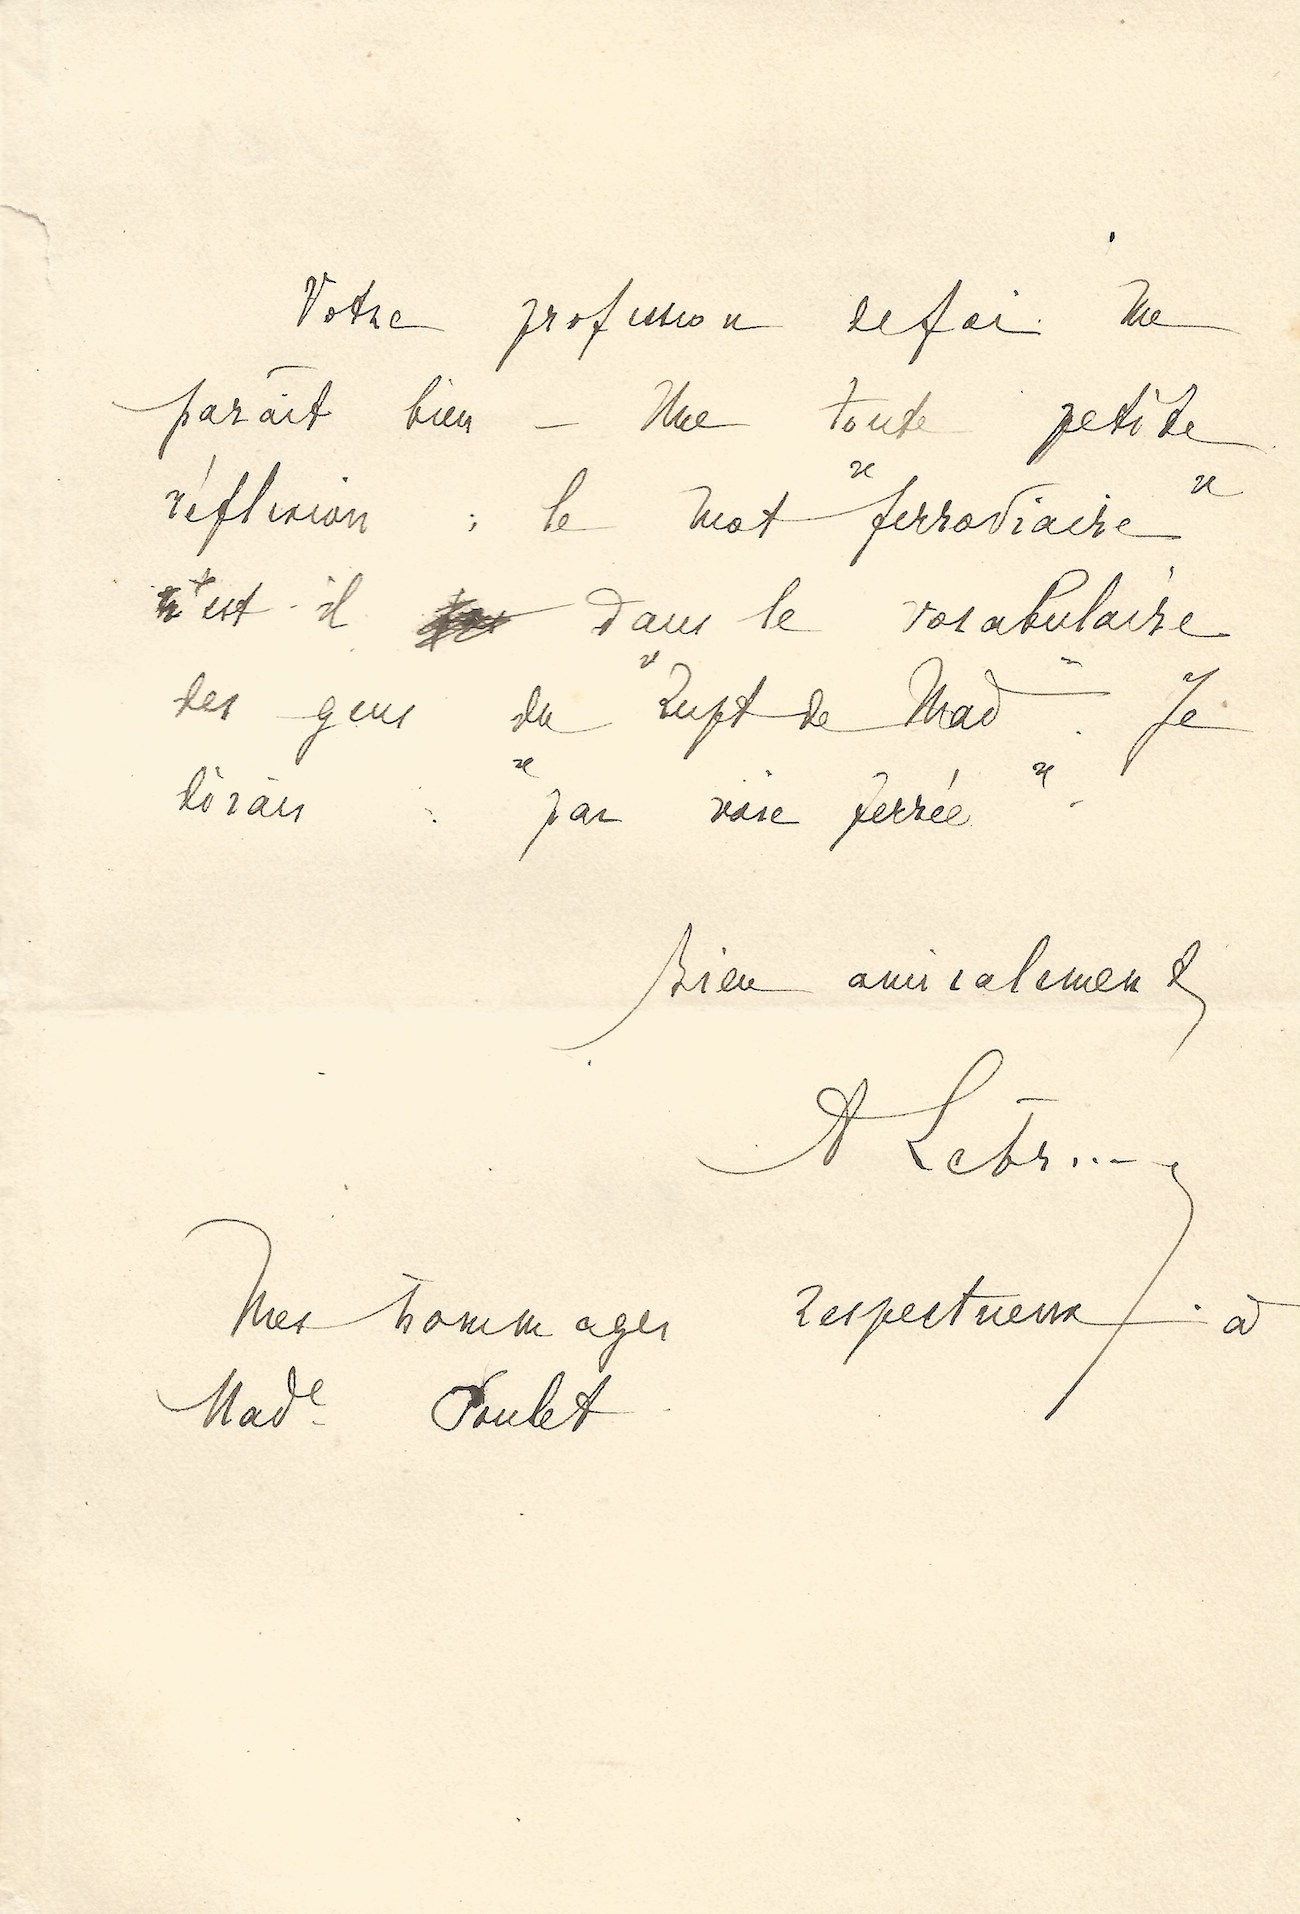 Votre profession de foi me
paraît bien — Une toute petite
réflexion : le mot "ferroviaire"
est-il dans le vocabulaire
des gens du "Rupt de Mad". Je
dirais : "par voie ferrée".
Bien amicalement
A Lebrun
Mes hommages respectueux à
Made Poulet